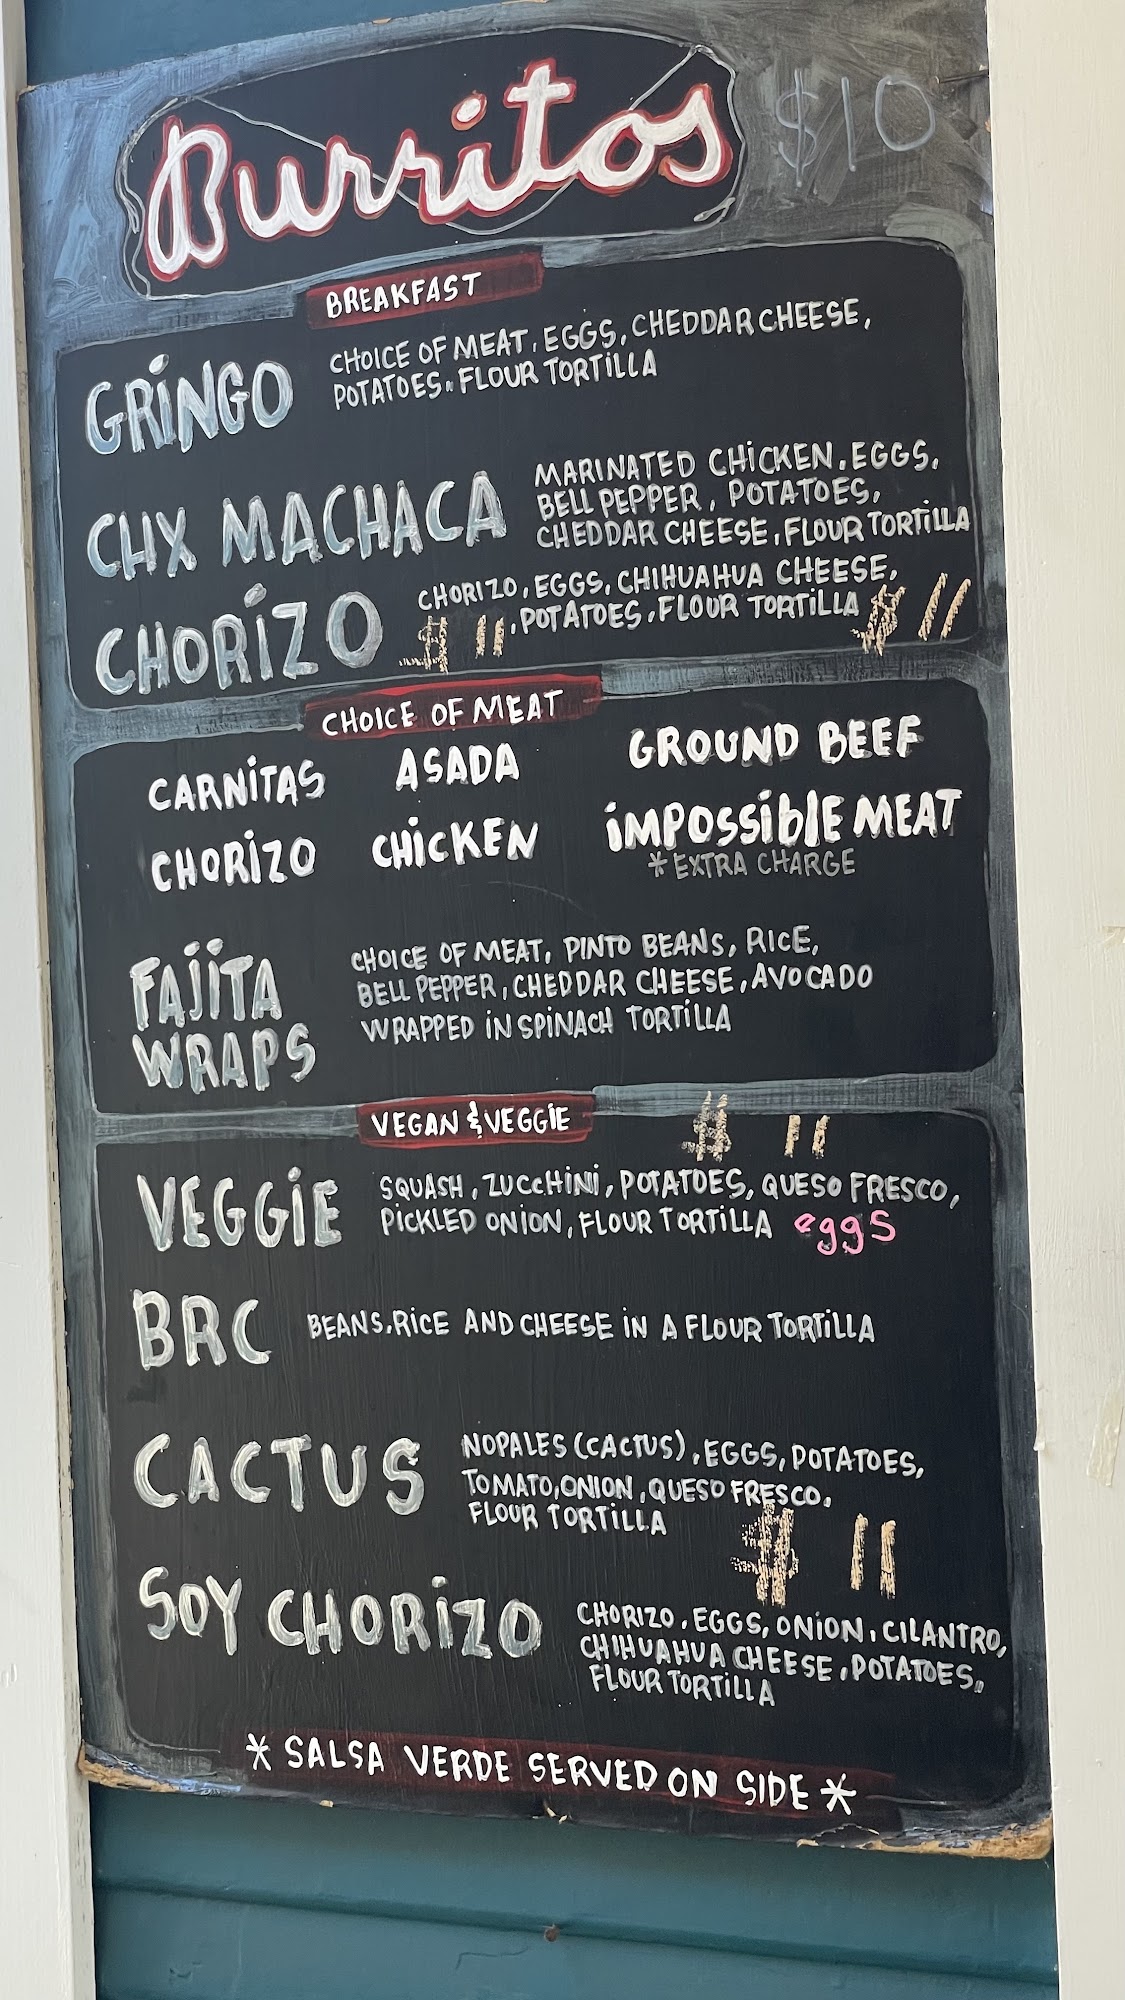 Burritos $10
BREAKFAST
GRINGO
CHOICE OF MEAT, EGGS, CHEDDAR CHEESE,
POTATOES. FLOUR TORTILLA
CHX MACHACA
MARINATED CHICKEN, EGGS,
BELL PEPPER, POTATOES,
CHEDDAR CHEESE, FLOUR TORTILLA
CHORIZO
CHORIZO, EGGS, CHIHUAHUA CHEESE,
$11, POTATOES, FLOUR TORTILLA $11
CHOICE OF MEAT
CARNITAS ASADA GROUND BEEF
CHORIZO CHICKEN IMPOSSIBLE MEAT
*EXTRA CHARGE
FAJITA
WRAPS
CHOICE OF MEAT, PINTO BEANS, RICE,
BELL PEPPER, CHEDDAR CHEESE, AVOCADO
WRAPPED IN SPINACH TORTILLA
VEGAN & VEGGIE $11
VEGGIE
SQUASH, ZUCCHINI, POTATOES, QUESO FRESCO,
PICKLED ONION, FLOUR TORTILLA eggs
BRC
BEANS, RICE AND CHEESE IN A FLOUR TORTILLA
CACTUS
NOPALES (CACTUS), EGGS, POTATOES,
TOMATO, ONION, QUESO FRESCO,
FLOUR TORTILLA
$11
SOY CHORIZO
CHORIZO, EGGS, ONION, CILANTRO,
CHIHUAHUA CHEESE, POTATOES,
FLOUR TORTILLA
* SALSA VERDE SERVED ON SIDE *